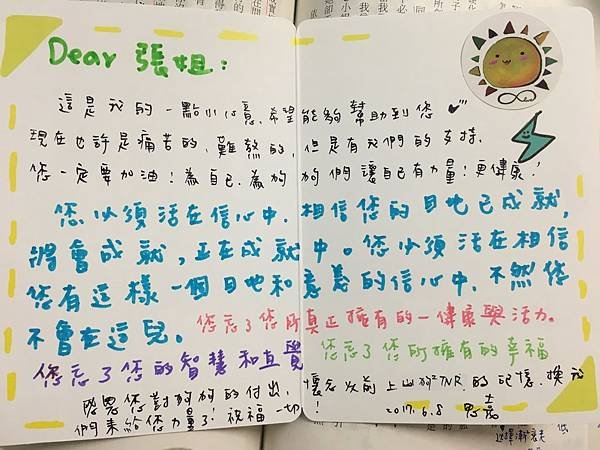 Dear 張姐：
這是我的一點小心意,希望能夠幫助到您
現在也許是痛苦的、難熬的,但是有我們的支持,
您一定要加油！為自己、為狗狗們讓自己有力量！更健康！
您必須活在信心中,相信您的目地已成就,
將會成就,正在成就中。您必須活在相信
您有這樣一個目地和意義的信心中,不然您
不會在這兒。您忘了您所真正擁有的一健康與活力。
您忘了您的智慧和直覺 您忘了您所擁有的幸福
感恩您對狗狗的付出,懷念以前上山狗狗TNR的記憶,換我
們來給您力量了！祝福一切！ 2017.6.8 思嘉